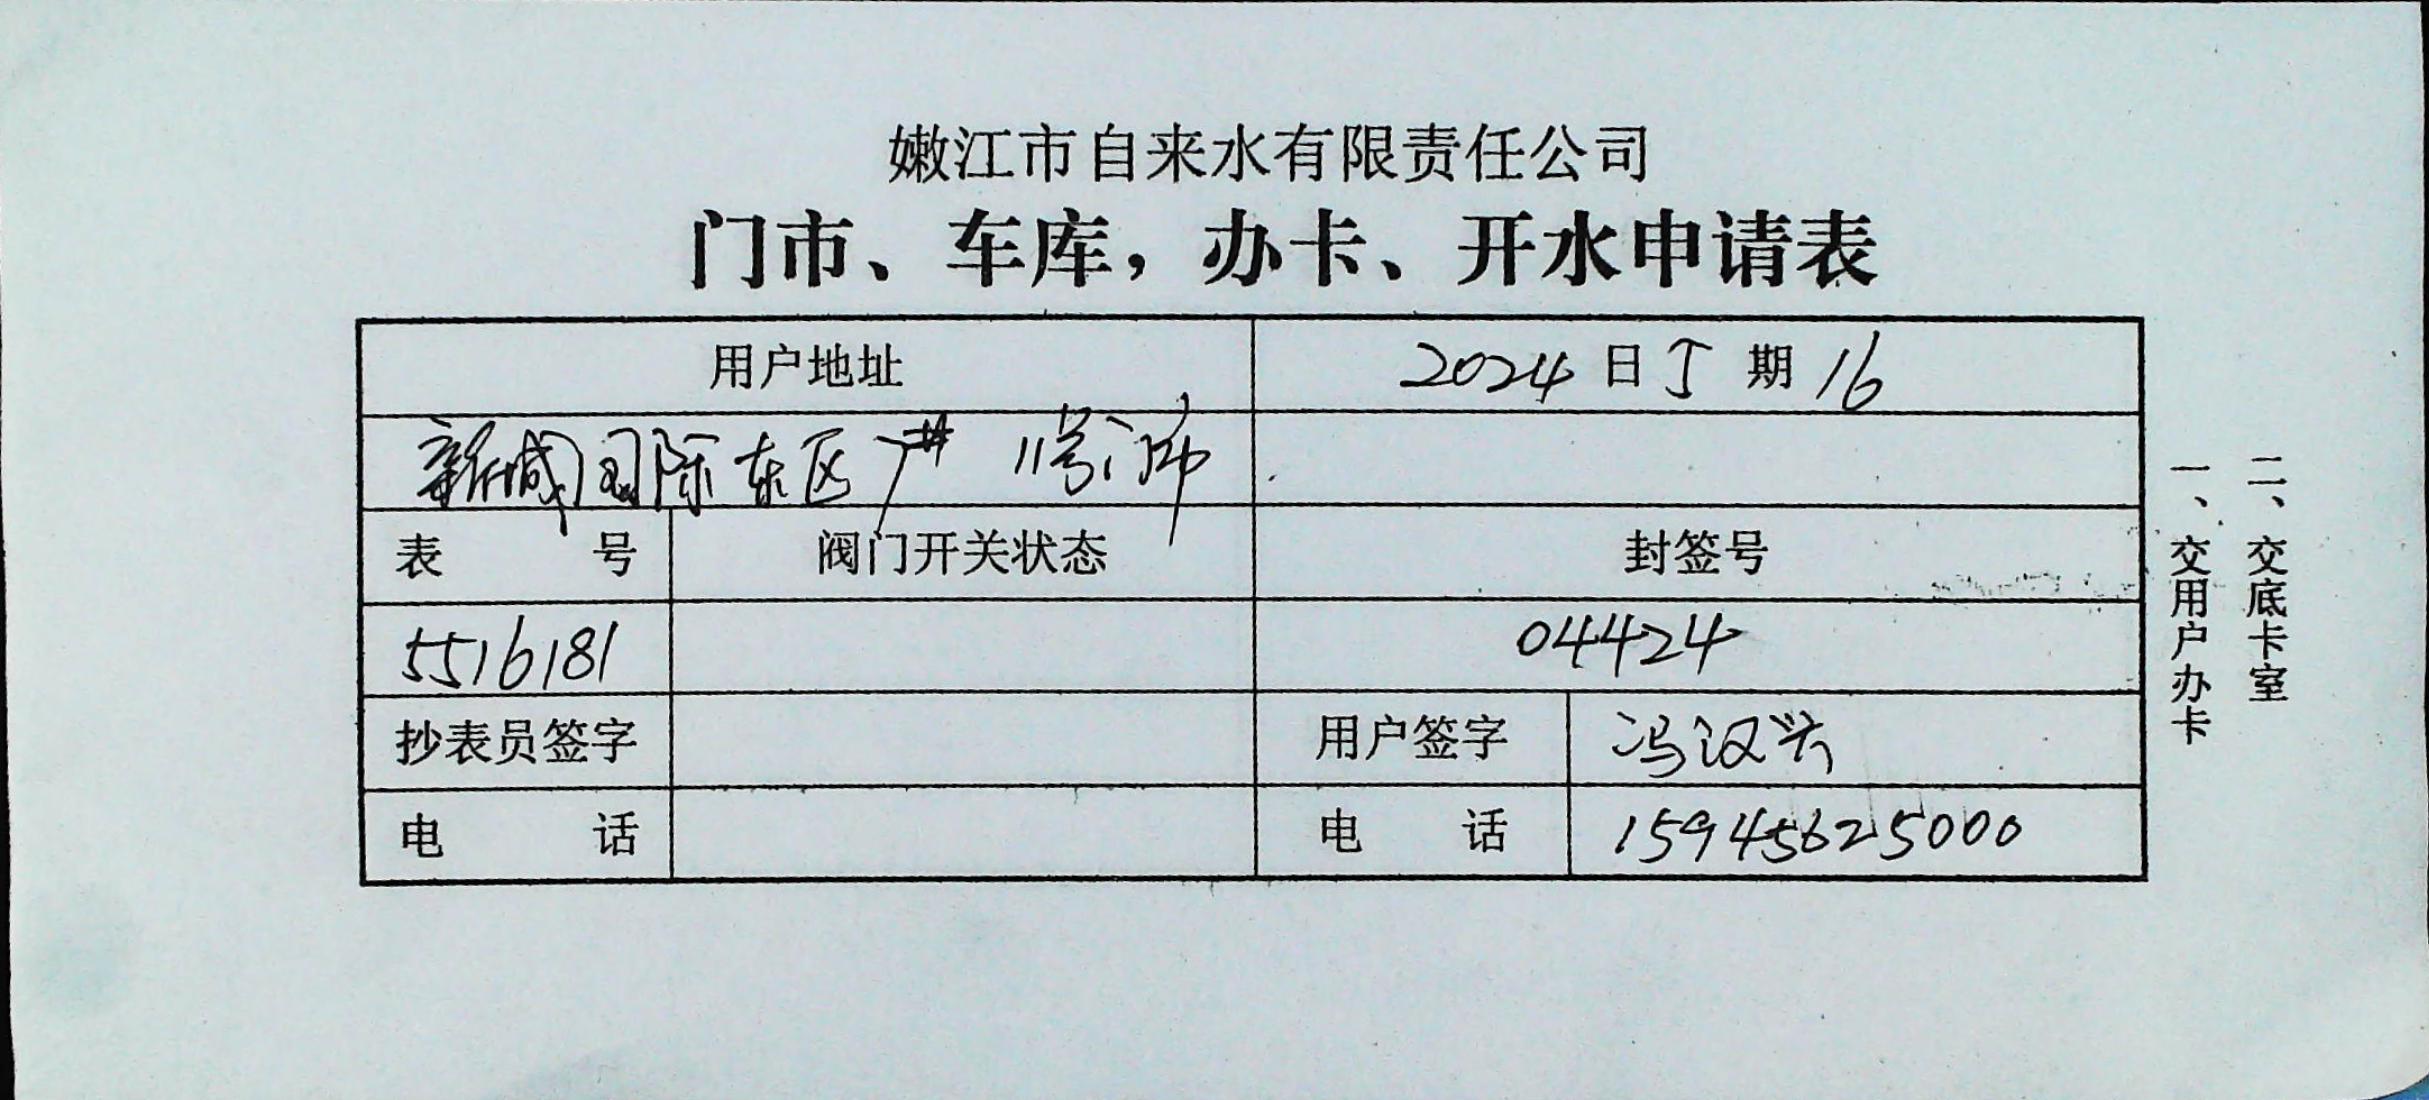 嫩江市自来水有限责任公司
门市、车库，办卡、开水申请表
用户地址 2024日5期16
新城国际东区7# 11号门市
表号 阀门开关状态 封签号
5516181 04424
抄表员签字 用户签字 冯汉兴
电话 电话 15945625000
二、交底卡室
一、交用户办卡